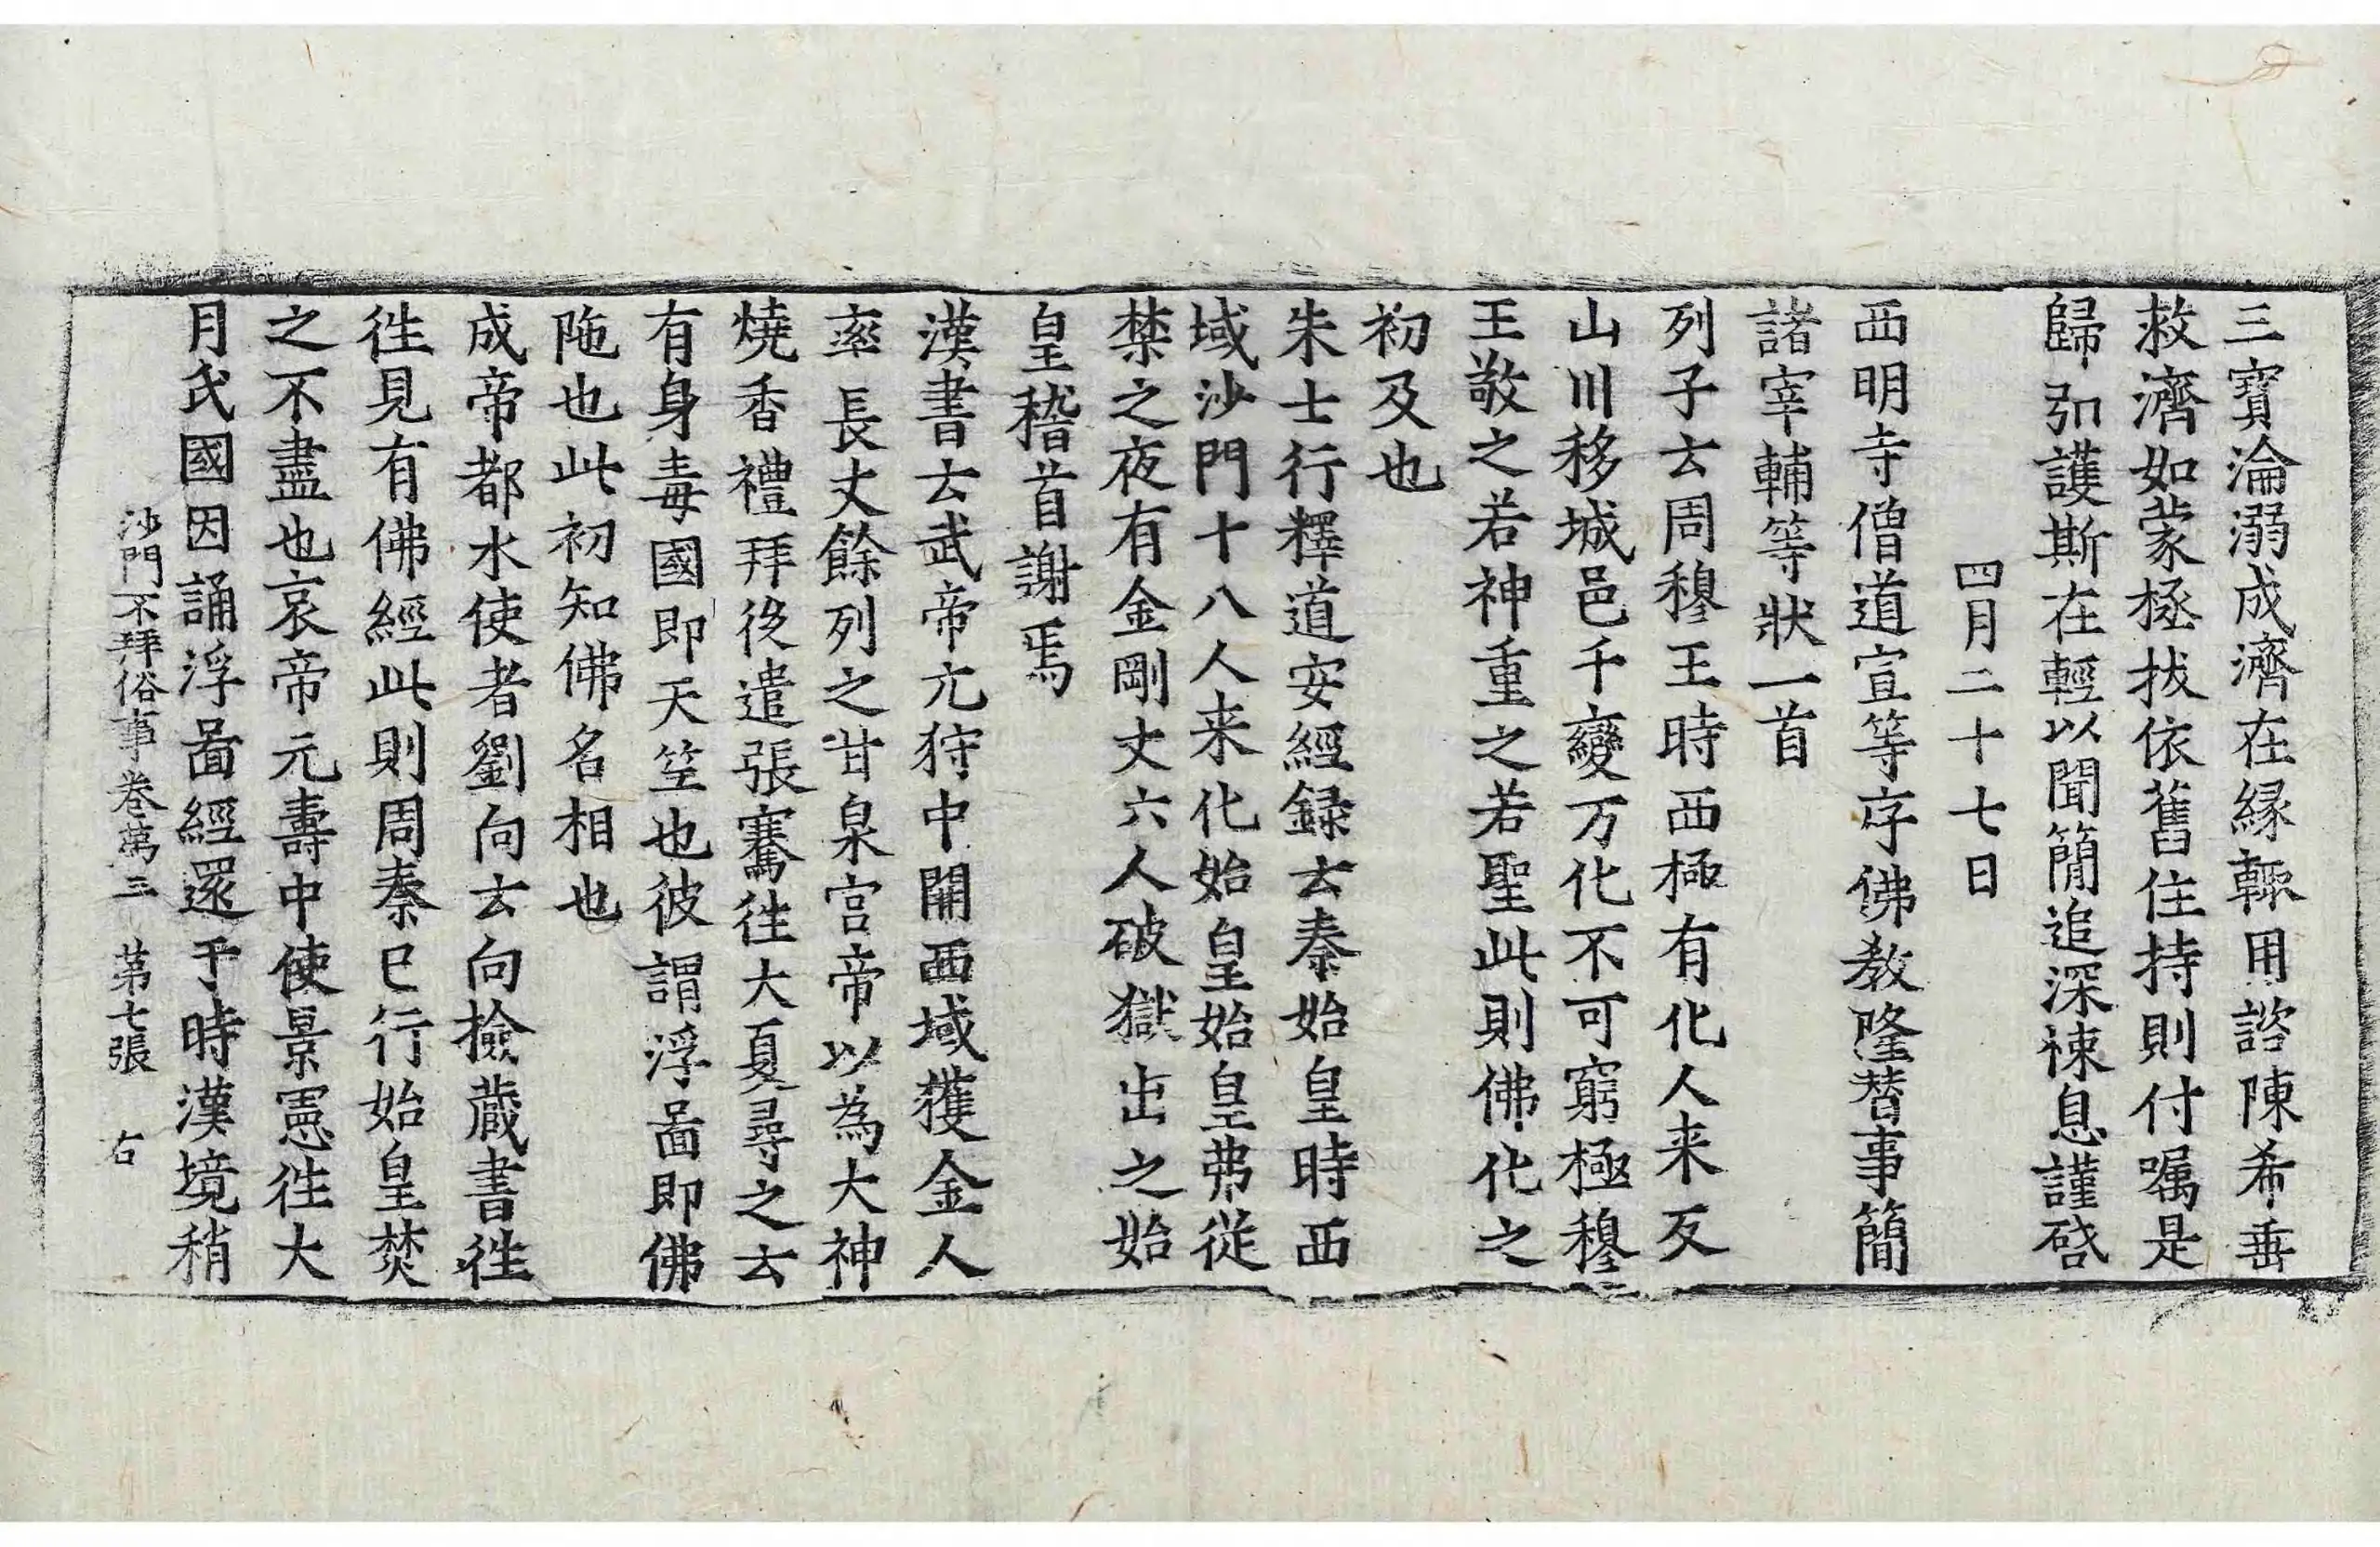 三寶淪溺成濟在縁輙用諮陳希垂
救濟如蒙拯拔依舊住持則付囑是
歸弘護斯在輕以聞簡追深悚息謹啓
四月二十七日
西明寺僧道宣等序佛教隆替事簡
諸宰輔等狀一首
列子云周穆王時西極有化人来反
山川移城邑千變万化不可窮極穆
王敬之若神重之若聖此則佛化之
初及也
朱士行釋道安經録云秦始皇時西
域沙門十八人来化始皇始皇弗從
禁之夜有金剛丈六人破獄出之始
皇稽首謝焉
漢書云武帝元狩中開西域獲金人
率長丈餘列之甘泉宮帝以為大神
燒香禮拜後遣張騫往大夏尋之云
有身毒國即天笁也彼謂浮啚即佛
陁也此初知佛名相也
成帝都水使者劉向云向撿藏書往
往見有佛經此則周秦巳行始皇焚
之不盡也哀帝元壽中使景憲往大
月氏國因誦浮啚經還于時漢境稍
沙門不拜俗事卷苐三 苐七張 右